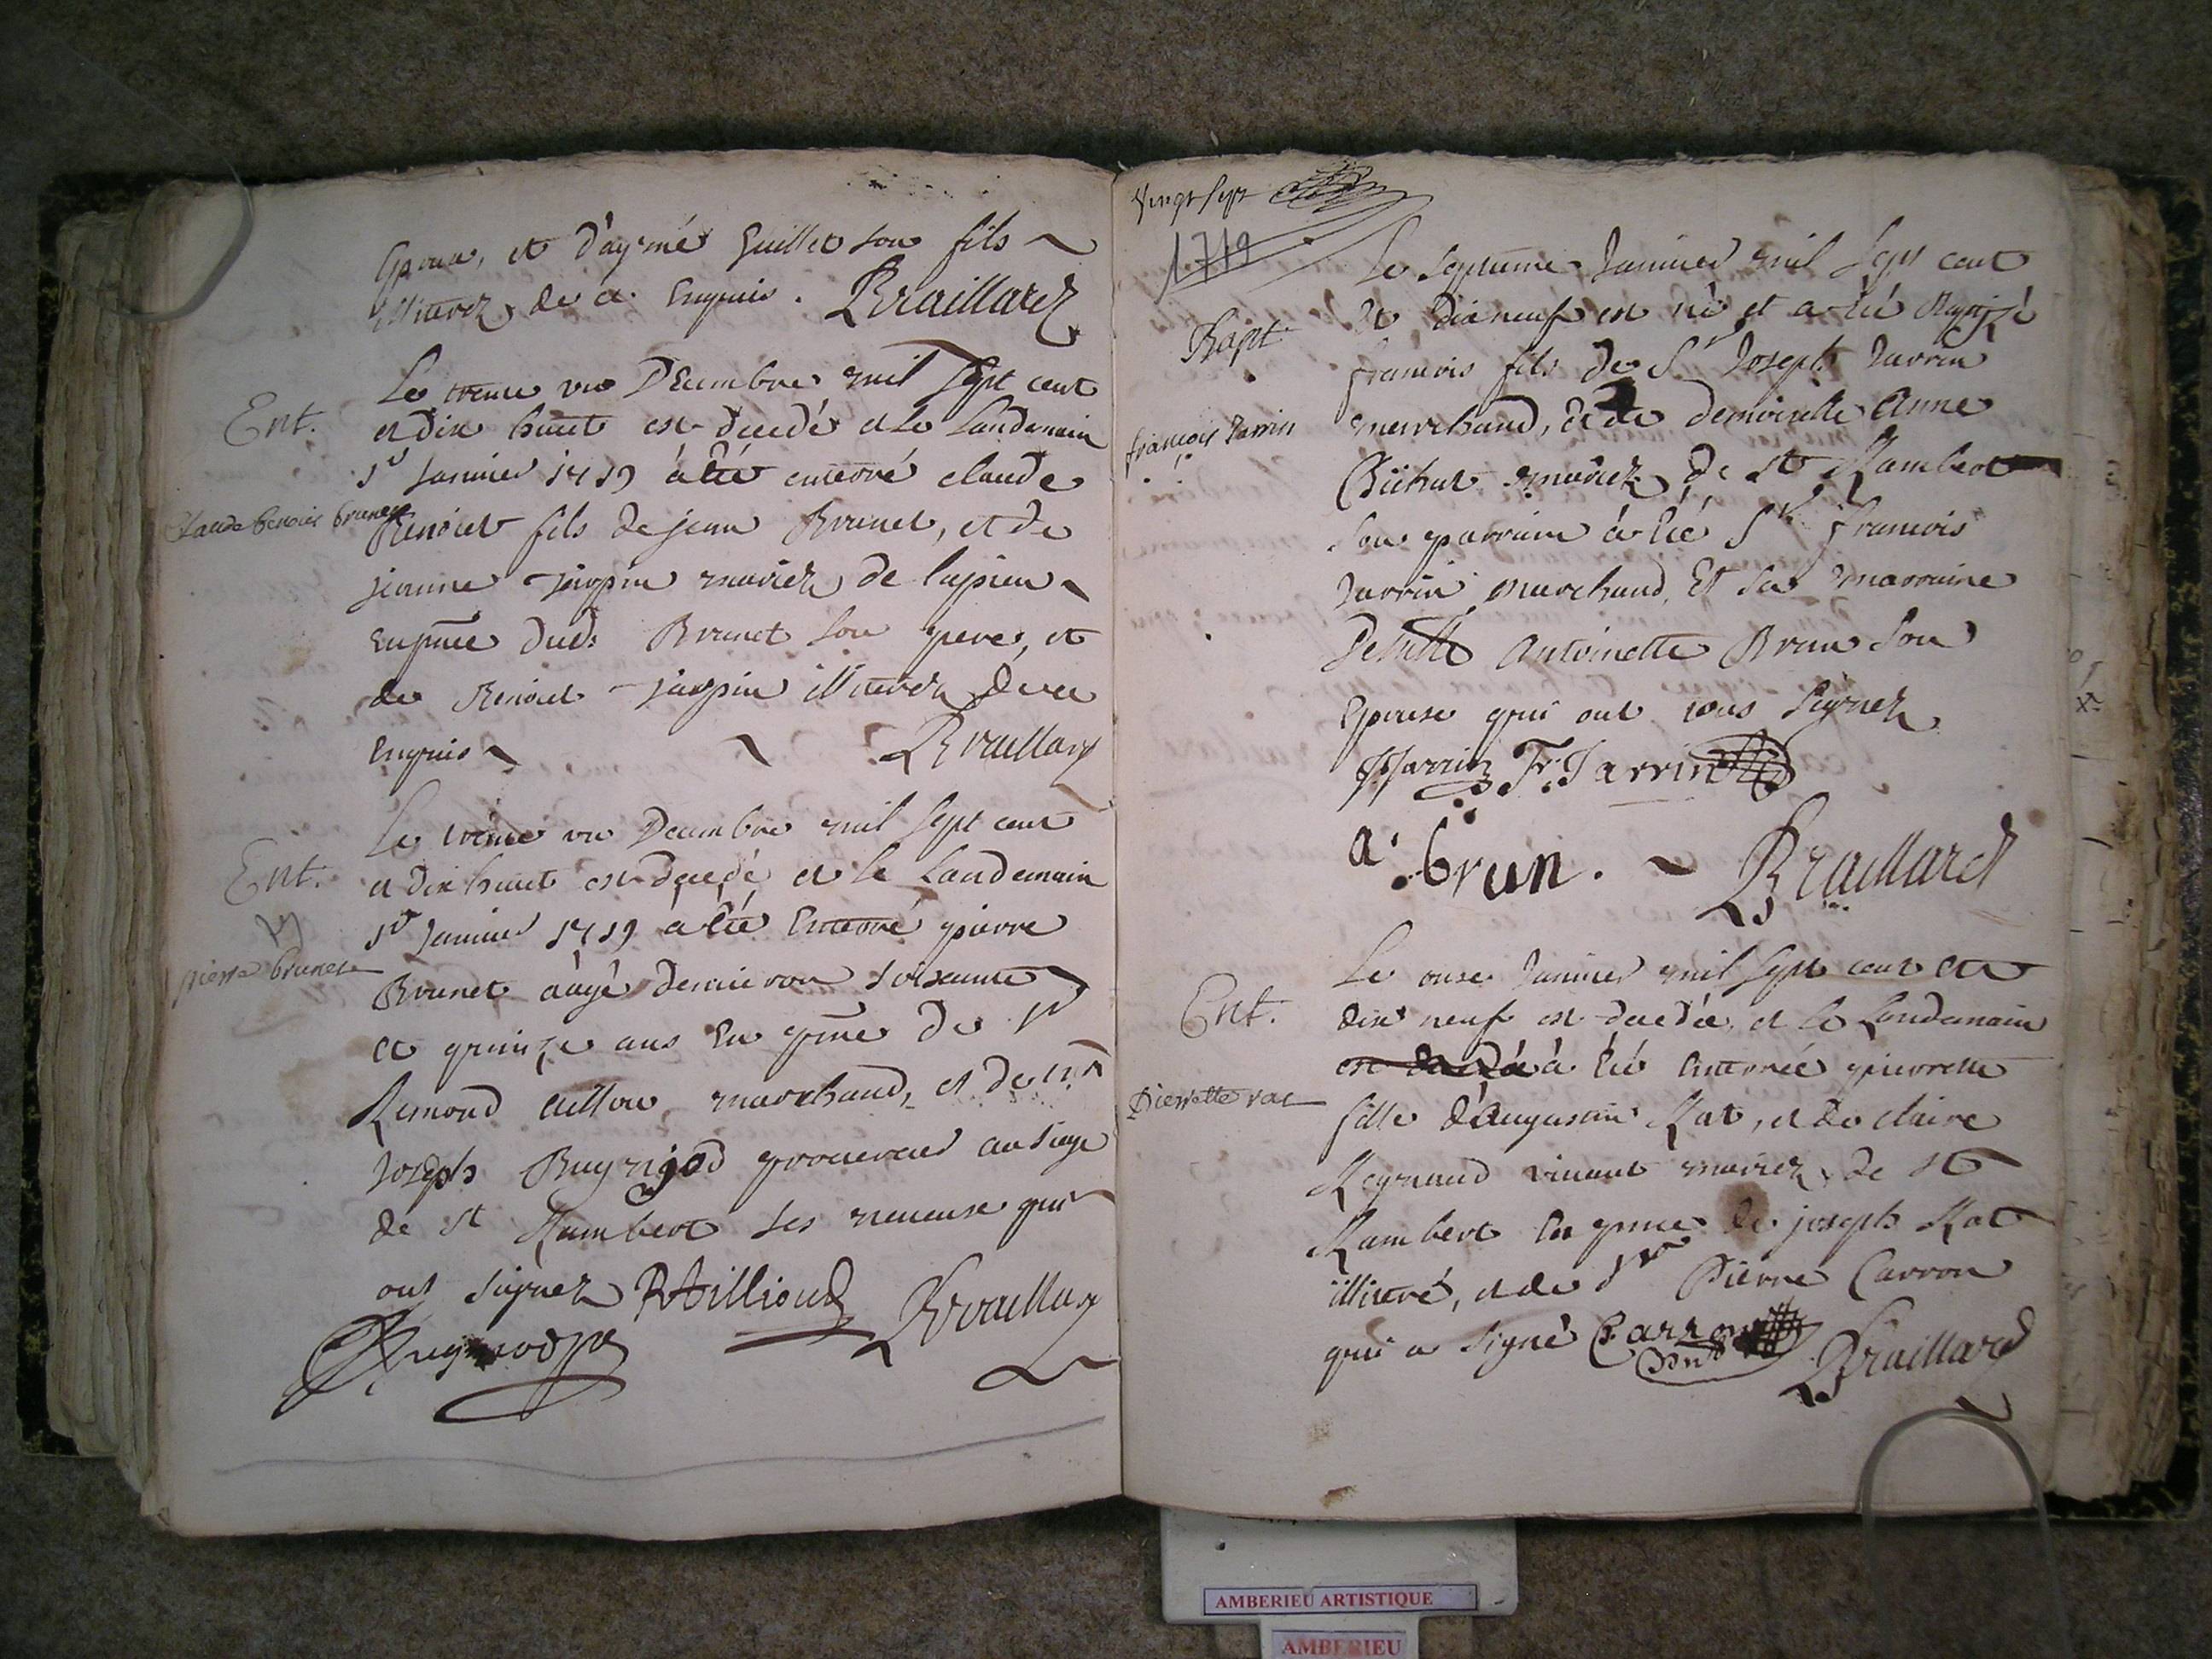 Epoux, et d'aymé Guillet son fils ~
illiterez de ce Enquis. Braillard
Ent.
Le trente un Decembre mil sept cent
et dix huict est decedé et le Landemain
1r Janvier 1719 a été enterré claude
Claude benoict brunet
Benoict fils de jean Brunet, et de
jeanne mariez de
En pnce dud: Brunet son pere, et
de Benoict illiterez de ce
Enquis ~ ~ Braillard
Ent.
Le trente un Decembre mil sept cent
et dix huict est decedé et le Landemain
1r Janvier 1719 a été Enterré pierre
pierre brunet
Brunet aagé denviron soixante
et quinze ans En pnce de Sr
Remond marchand, et de
Joseph procureur au siege
de St Rambert ses neueux qui
ont signez RAillioud Braillard
vingt sept
1719
Le septieme Janvier mil sept cent
et dix neuf est né et a été Baptizé
Bapt.
francois fils de Sr Joseph Jarrin
marchand, et de demoiselle Anne
françois Jarrin
mariez de St Rambert
son parrain a été Sr francois
Jarrin marchand, Et sa marraine
Delle Antoinette Brun son
Epouse qui ont tous signez
Jarrin Fr. Jarrin
a. brun. ~ Braillard
Le onze Janvier mil sept cent et
Ent.
dix neuf est decedée, et le Landemain
est decedée a été Enterrée pierrette
Pierrette rat
fille d'Augustin Rat, et de claire
Reynaud viuant mariez de St
Rambert En pnce de joseph Rat
illiteré, et de Sr Pierre Carron
qui a signé Carron Braillard
AMBERIEU ARTISTIQUE
AMBERIEU